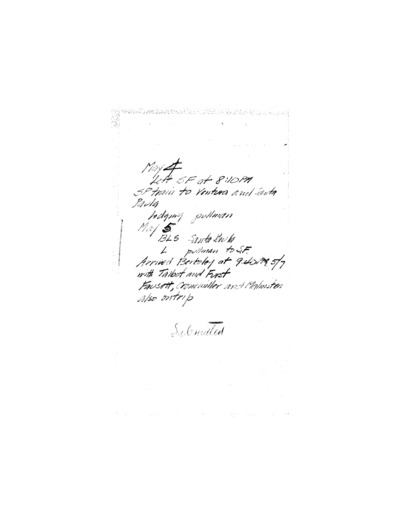 May 4
Left SF at 8:10 PM
SF train to Ventura and Santa
Paula
lodging pullman
May 5
BLS Santa Paula
L pullman to S.F.
Arrived Berkeley at 9:40 5/7
with Talbot and Furst
Fawcett, Cronemiller and
also on trip
Submitted